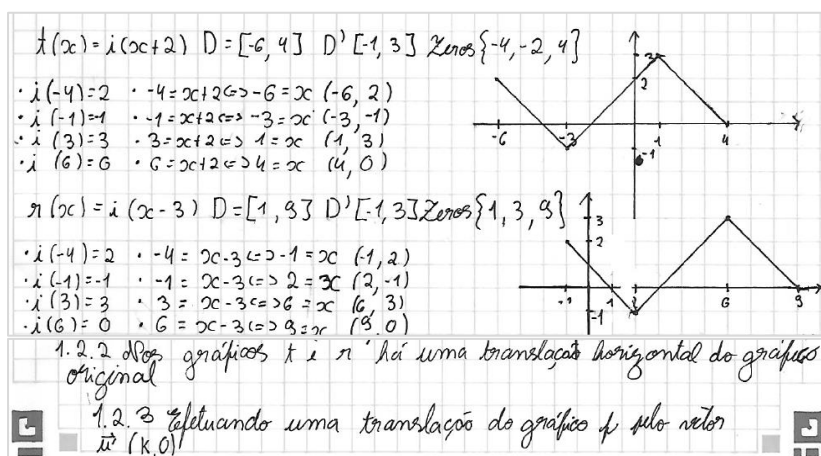 t(x) = i(x+2) D = [-6, 4] D' [-1, 3] Zeros {-4, -2, 4}
· i(-4) = 2 · -4 = x+2 <=> -6 = x (-6, 2)
· i(-1) = -1 · -1 = x+2 <=> -3 = x (-3, -1)
· i(3) = 3 · 3 = x+2 <=> 1 = x (1, 3)
· i(6) = 0 · 6 = x+2 <=> 4 = x (4, 0)
3
2
-6 -3 1 4
-1
r(x) = i(x-3) D = [1, 9] D' [-1, 3] Zeros {1, 3, 9}
· i(-4) = 2 · -4 = x-3 <=> -1 = x (-1, 2)
· i(-1) = -1 · -1 = x-3 <=> 2 = x (2, -1)
· i(3) = 3 · 3 = x-3 <=> 6 = x (6, 3)
· i(6) = 0 · 6 = x-3 <=> 9 = x (9, 0)
3
2
-1 1 6 9
-1
1.2.2 Nos gráficos t e r há uma translação horizontal do gráfico
original
1.2.3 Efetuando uma translação do gráfico f pelo vetor
u (k, 0)